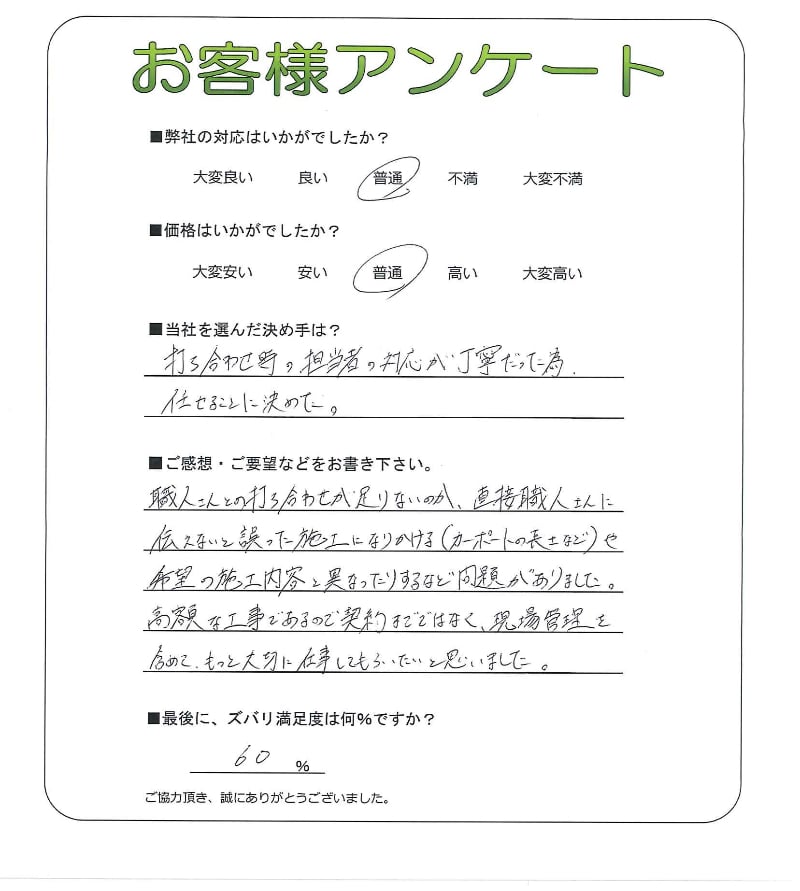 お客様アンケート
■弊社の対応はいかがでしたか?
大変良い 良い 普通 不満 大変不満
■価格はいかがでしたか?
大変安い 安い 普通 高い 大変高い
■当社を選んだ決め手は?
打ち合わせ時の担当者の対応が丁寧だった為、
任せることに決めた。
■ご感想・ご要望などをお書き下さい。
職人さんとの打ち合わせが足りないのか、直接職人さんに
伝えないと誤った施工になりかける(カーポートの長さなど)や
希望の施工内容と異なったりするなど問題がありました。
高額な工事であるので契約までではなく、現場管理を
含めて、もっと大切に仕事してもらいたいと思いました。
■最後に、ズバリ満足度は何%ですか?
60 %
ご協力頂き、誠にありがとうございました。